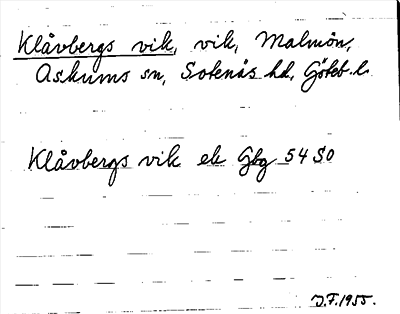 Klåvbergs vik, vik, Malmön,
Askums sn, Sotenäs hd, Göteb. l.
Klåvbergs vik ek Gbg 54 SO
J.F. 1955.